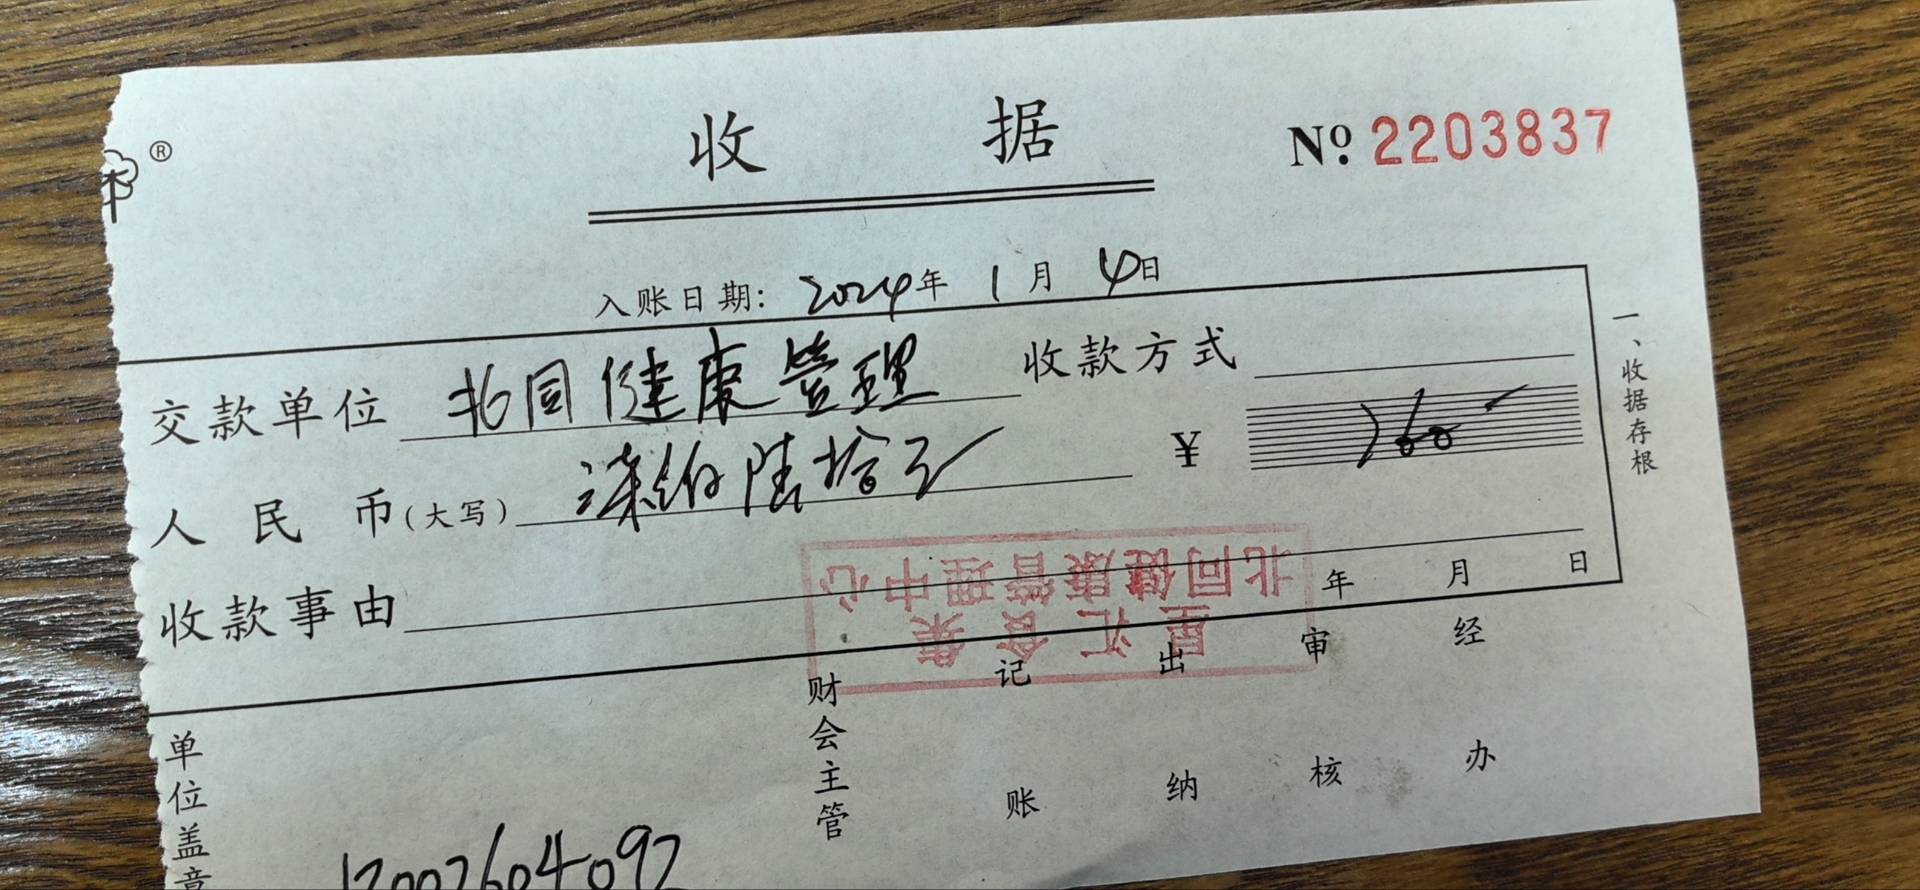 ®
收据
№ 2203837
入账日期: 2024年 1月 4日
交款单位 北同健康管理 收款方式
人民币(大写) 柒佰陆拾元 ¥ 760
收款事由
年 月 日
北同健康管理中心
星汇荟集
财会主管 记账 出纳 审核 经办
单位盖章
一、收据存根